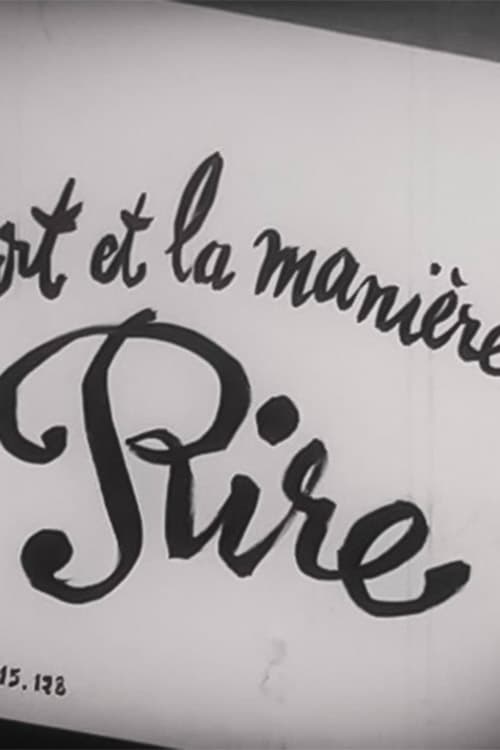 rt et la manière
Rire
15.128